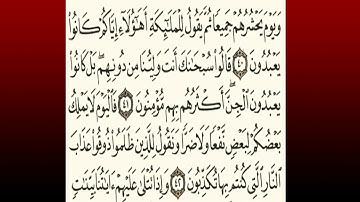 وَيَوْمَ يَحْشُرُهُمْ جَمِيعًا ثُمَّ يَقُولُ لِلْمَلَٰٓئِكَةِ أَهَٰٓؤُلَآءِ إِيَّاكُمْ كَانُوا۟
يَعْبُدُونَ ٤٠ قَالُوا۟ سُبْحَٰنَكَ أَنتَ وَلِيُّنَا مِن دُونِهِم ۖ بَلْ كَانُوا۟
يَعْبُدُونَ ٱلْجِنَّ ۖ أَكْثَرُهُم بِهِم مُّؤْمِنُونَ ٤١ فَٱلْيَوْمَ لَا يَمْلِكُ
بَعْضُكُمْ لِبَعْضٍ نَّفْعًا وَلَا ضَرًّا وَنَقُولُ لِلَّذِينَ ظَلَمُوا۟ ذُوقُوا۟ عَذَابَ
ٱلنَّارِ ٱلَّتِى كُنتُم بِهَا تُكَذِّبُونَ ٤٢ وَإِذَا تُتْلَىٰ عَلَيْهِمْ ءَايَٰتُنَا بَيِّنَٰتٍ